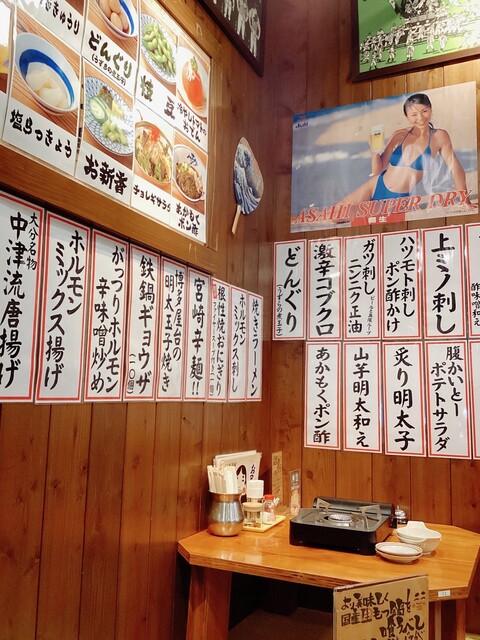 どんぐり
(うずらの煮玉子)
枝豆
塩らっきょう
お新香
チョレギサラダ
あかもく
ポン酢
大分名物
中津流唐揚げ
ホルモン
ミックス揚げ
がっつりホルモン
辛味噌炒め
鉄鍋ギョウザ
(一〇個)
博多屋台の
明太玉子焼き
宮崎辛麺!!
根性焼おにぎり
ホルモン
ミックス刺し
焼きラーメン
Asahi
ASAHI SUPER DRY
生
上ミノ刺し
ハツモト刺し
ポン酢かけ
ガツ刺し
ニンニク正油
激辛コブクロ
どんぐり
(うずらの煮玉子)
酢味噌和え
腹かいとー
ポテトサラダ
炙り明太子
山芋明太和え
あかもくポン酢
より美味しく
国産生もつ鍋を